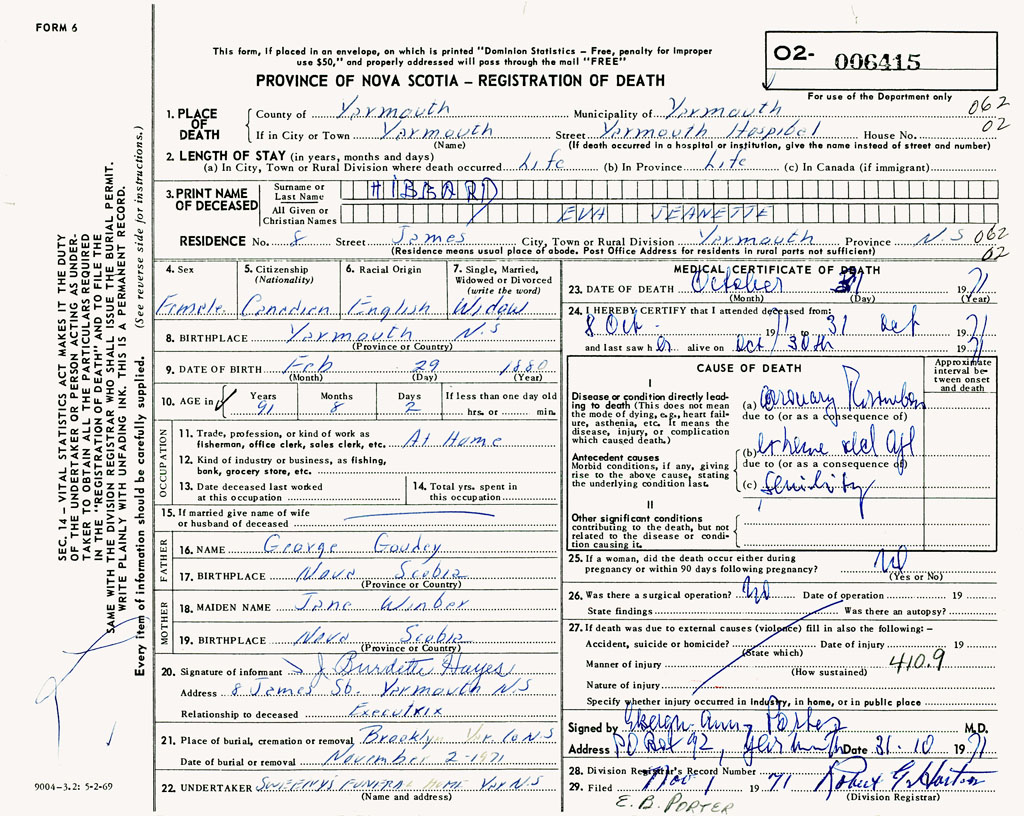 FORM 6
This form, if placed in an envelope, on which is printed "Dominion Statistics – Free, penalty for improper
use $50," and properly addressed will pass through the mail "FREE"
PROVINCE OF NOVA SCOTIA – REGISTRATION OF DEATH
02- 006415
For use of the Department only
062
02
1. PLACE OF DEATH
County of Yarmouth Municipality of Yarmouth
If in City or Town Yarmouth Street Yarmouth Hospital House No.
(Name) (If death occurred in a hospital or institution, give the name instead of street and number)
2. LENGTH OF STAY (in years, months and days)
(a) In City, Town or Rural Division where death occurred Life (b) In Province Life (c) In Canada (if immigrant)
3. PRINT NAME OF DECEASED
Surname or Last Name HIBBARD
All Given or Christian Names EVA JEANETTE
RESIDENCE No. 8 Street James City, Town or Rural Division Yarmouth Province N.S 062
02
(Residence means usual place of abode. Post Office Address for residents in rural parts not sufficient)
4. Sex
Female
5. Citizenship
(Nationality)
Canadian
6. Racial Origin
English
7. Single, Married,
Widowed or Divorced
(write the word)
Widow
8. BIRTHPLACE Yarmouth N.S
(Province or Country)
9. DATE OF BIRTH Feb 29 1880
(Month) (Day) (Year)
10. AGE in Years 91 Months 8 Days 2 If less than one day old
hrs. or min.
OCCUPATION
11. Trade, profession, or kind of work as
fisherman, office clerk, sales clerk, etc. At Home
12. Kind of industry or business, as fishing,
bank, grocery store, etc.
13. Date deceased last worked
at this occupation
14. Total yrs. spent in
this occupation
15. If married give name of wife
or husband of deceased
FATHER
16. NAME George Goudey
17. BIRTHPLACE Nova Scotia
(Province or Country)
MOTHER
18. MAIDEN NAME Jane
19. BIRTHPLACE Nova Scotia
(Province or Country)
20. Signature of informant J. Burdette Hayes
Address 8 James St. Yarmouth N.S
Relationship to deceased Executrix
21. Place of burial, cremation or removal Brooklyn Yar. Co N.S
Date of burial or removal November 2-1971
22. UNDERTAKER SWEENY'S FUNERAL HOME Yar N.S
(Name and address)
MEDICAL CERTIFICATE OF DEATH
23. DATE OF DEATH October 31 1971
(Month) (Day) (Year)
24. I HEREBY CERTIFY that I attended deceased from:
8 Oct 1971 to 31 Oct 1971
and last saw her alive on Oct 30th 1971
CAUSE OF DEATH
Approximate
interval be-
tween onset
and death
I
Disease or condition directly lead-
ing to death (This does not mean
the mode of dying, e.g., heart fail-
ure, asthenia, etc. It means the
disease, injury, or complication
which caused death.)
(a) Coronary Thrombosis
due to (or as a consequence of)
Antecedent causes
Morbid conditions, if any, giving
rise to the above cause, stating
the underlying condition last.
(b) extreme old age
due to (or as a consequence of)
(c) Senility
II
Other significant conditions
contributing to the death, but not
related to the disease or condi-
tion causing it.
25. If a woman, did the death occur either during
pregnancy or within 90 days following pregnancy? No
(Yes or No)
26. Was there a surgical operation? No Date of operation 19
State findings Was there an autopsy?
27. If death was due to external causes (violence) fill in also the following: –
Accident, suicide or homicide? Date of injury 19
(State which)
Manner of injury 410.9
(How sustained)
Nature of injury
Specify whether injury occurred in Industry, in home, or in public place
Signed by Porter M.D.
Address PO Box 92, Yarmouth Date 31.10 1971
28. Division Registrar's Record Number
29. Filed Nov 1 1971 Robert G. Horton
(Division Registrar)
E. B. PORTER
SEC. 14 – VITAL STATISTICS ACT MAKES IT THE DUTY
OF THE UNDERTAKER OR PERSON ACTING AS UNDER-
TAKER TO OBTAIN ALL THE PARTICULARS REQUIRED
IN THE "REGISTRATION OF DEATH" AND TO FILE THE
SAME WITH THE DIVISION REGISTRAR WHO SHALL ISSUE THE BURIAL PERMIT.
WRITE PLAINLY WITH UNFADING INK. THIS IS A PERMANENT RECORD.
Every item of information should be carefully supplied. (See reverse side for instructions.)
9004-3.2: 5-2-69